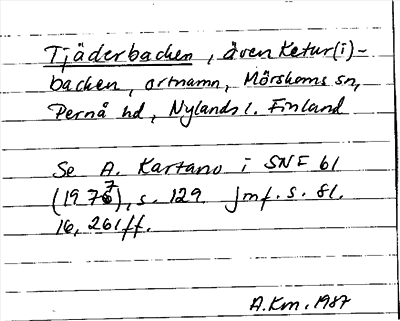 Tjäderbacken, även Ketur(i)-
backen, ortnamn, Mörskoms sn,
Pernå hd, Nylands l. Finland
Se A. Kartano i SNF 61
(1977), s. 129. Jmf. s. 81.
16, 261ff.
A.Km. 1987